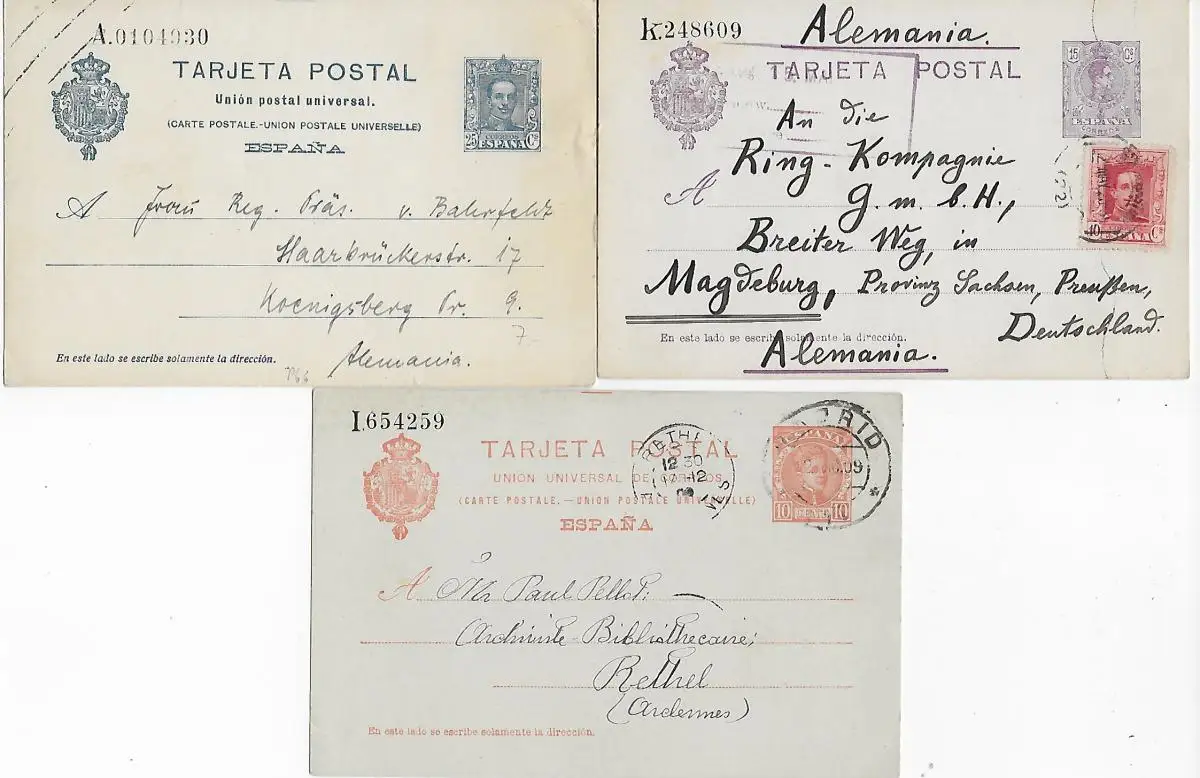 A.0104930
TARJETA POSTAL
Unión postal universal.
(CARTE POSTALE.-UNION POSTALE UNIVERSELLE)
ESPAÑA
CORREOS
25 Cs ESPAÑA
A Frau Reg. Präs. v. Bahrfeldt
Haarbrückerstr. 17
Koenigsberg Pr. 9.
7
En este lado se escribe solamente la dirección.
Alemania.
K.248609
Alemania.
15 Cs
TARJETA POSTAL
ESPAÑA
CORREOS
An die
Ring-Kompagnie
A
G.m.b.H.,
10 Cs
Breiter Weg, in
Magdeburg, Provinz Sachsen, Preußen,
Deutschland.
En este lado se escribe solamente la dirección.
Alemania.
I.654259
TARJETA POSTAL
UNIÓN UNIVERSAL DE CORREOS
(CARTE POSTALE.—UNION POSTALE UNIVERSELLE)
ESPAÑA
RETHEL
12 30
17-12
MADRID
09
ESPAÑA
10 CENTS 10
A Mr Paul Pellot
Archiviste-Bibliothécaire,
Rethel
(Ardennes)
En este lado se escribe solamente la dirección.